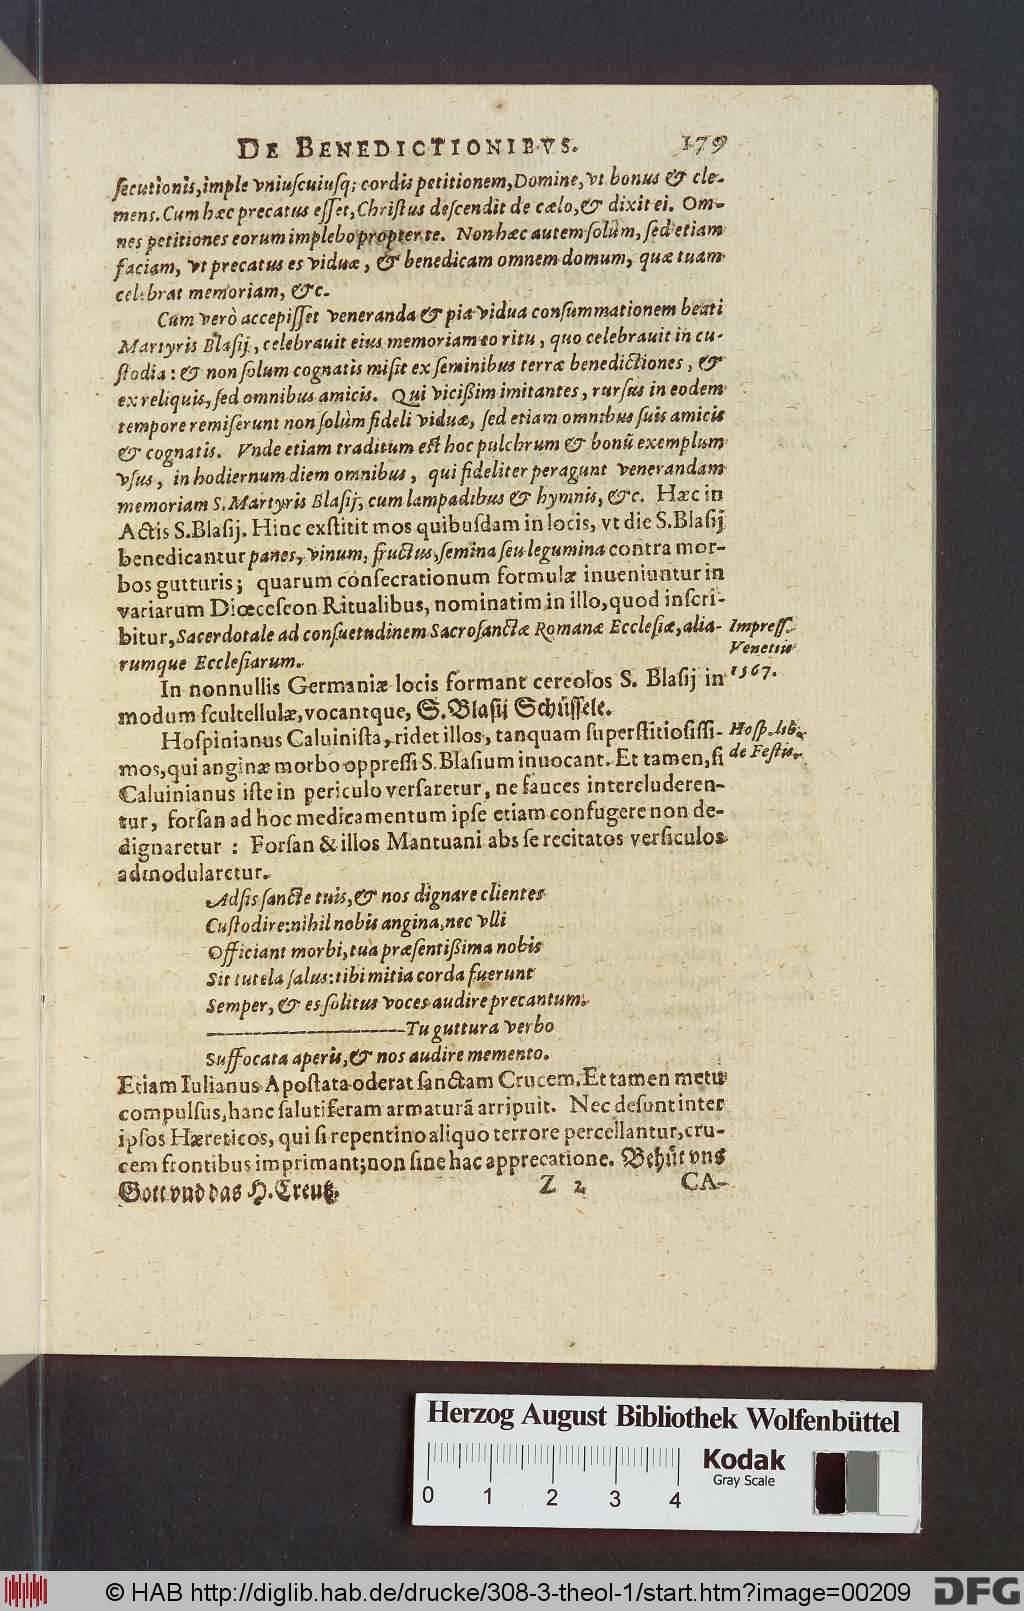 DE BENEDICTIONIBVS. 179
secutionis, imple vniuscuiusq; cordis petitionem, Domine, vt bonus & cle-
mens. Cum hæc precatus esset, Christus descendit de cælo, & dixit ei. Om-
nes petitiones eorum implebo propter te. Non hæc autem solùm, sed etiam
faciam, vt precatus es viduæ, & benedicam omnem domum, quæ tuam
celebrat memoriam, &c.
Cum verò accepisset veneranda & pia vidua consummationem beati
Martyris Blasij, celebrauit eius memoriam eo ritu, quo celebrauit in cu-
stodia: & non solum cognatis misit ex seminibus terræ benedictiones, &
ex reliquis, sed omnibus amicis. Qui vicißim imitantes, rursus in eodem
tempore remiserunt non solùm fideli viduæ, sed etiam omnibus suis amicis
& cognatis. Vnde etiam traditum est hoc pulchrum & bonū exemplum
vsus, in hodiernum diem omnibus, qui fideliter peragunt venerandam
memoriam S. Martyris Blasij, cum lampadibus & hymnis, &c. Hæc in
Actis S. Blasij. Hinc exstitit mos quibusdam in locis, vt die S. Blasij
benedicantur panes, vinum, fructus, semina seu legumina contra mor-
bos gutturis; quarum consecrationum formulæ inueniuntur in
variarum Diœceseon Ritualibus, nominatim in illo, quod inscri-
bitur, Sacerdotale ad consuetudinem Sacrosanctæ Romanæ Ecclesiæ, alia-
rumque Ecclesiarum.
Impress.
Venetiis
1567.
In nonnullis Germaniæ locis formant cereolos S. Blasij in
modum scultellulæ, vocantque, S. Blasij Schüssele.
Hospinianus Caluinista, ridet illos, tanquam superstitiosissi-
mos, qui anginæ morbo oppressi S. Blasium inuocant. Et tamen, si
Hosp. lib.
de Festis.
Caluinianus iste in periculo versaretur, ne fauces intercluderen-
tur, forsan ad hoc medicamentum ipse etiam confugere non de-
dignaretur: Forsan & illos Mantuani abs se recitatos versiculos
admodularetur.
Adsis sancte tuis, & nos dignare clientes
Custodire: nihil nobis angina, nec vlli
Officiant morbi, tua præsentißima nobis
Sit tutela salus: tibi mitia corda fuerunt
Semper, & es solitus voces audire precantum.
——————Tu guttura verbo
Suffocata aperis, & nos audire memento.
Etiam Iulianus Apostata oderat sanctam Crucem. Et tamen metu
compulsus, hanc salutiferam armaturā arripuit. Nec desunt inter
ipsos Hæreticos, qui si repentino aliquo terrore percellantur, cru-
cem frontibus imprimant; non sine hac apprecatione. Behüt vns
Gott vnd das H. Creutz.
Z 2 CA-
Herzog August Bibliothek Wolfenbüttel
Kodak
Gray Scale
0 1 2 3 4
© HAB http://diglib.hab.de/drucke/308-3-theol-1/start.htm?image=00209
DFG